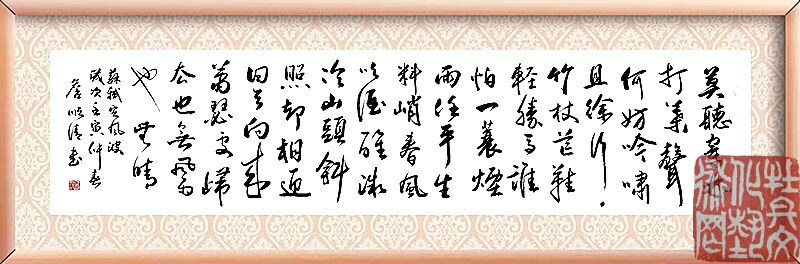 莫聽穿林
打葉聲
何妨吟嘯
且徐行
竹杖芒鞋
輕勝馬誰
怕一蓑煙
雨任平生
料峭春風
吹酒醒微
冷山頭斜
照却相迎
回首向來
蕭瑟處歸
去也無風雨
也無晴
蘇軾定風波
歲次壬寅仲春
書